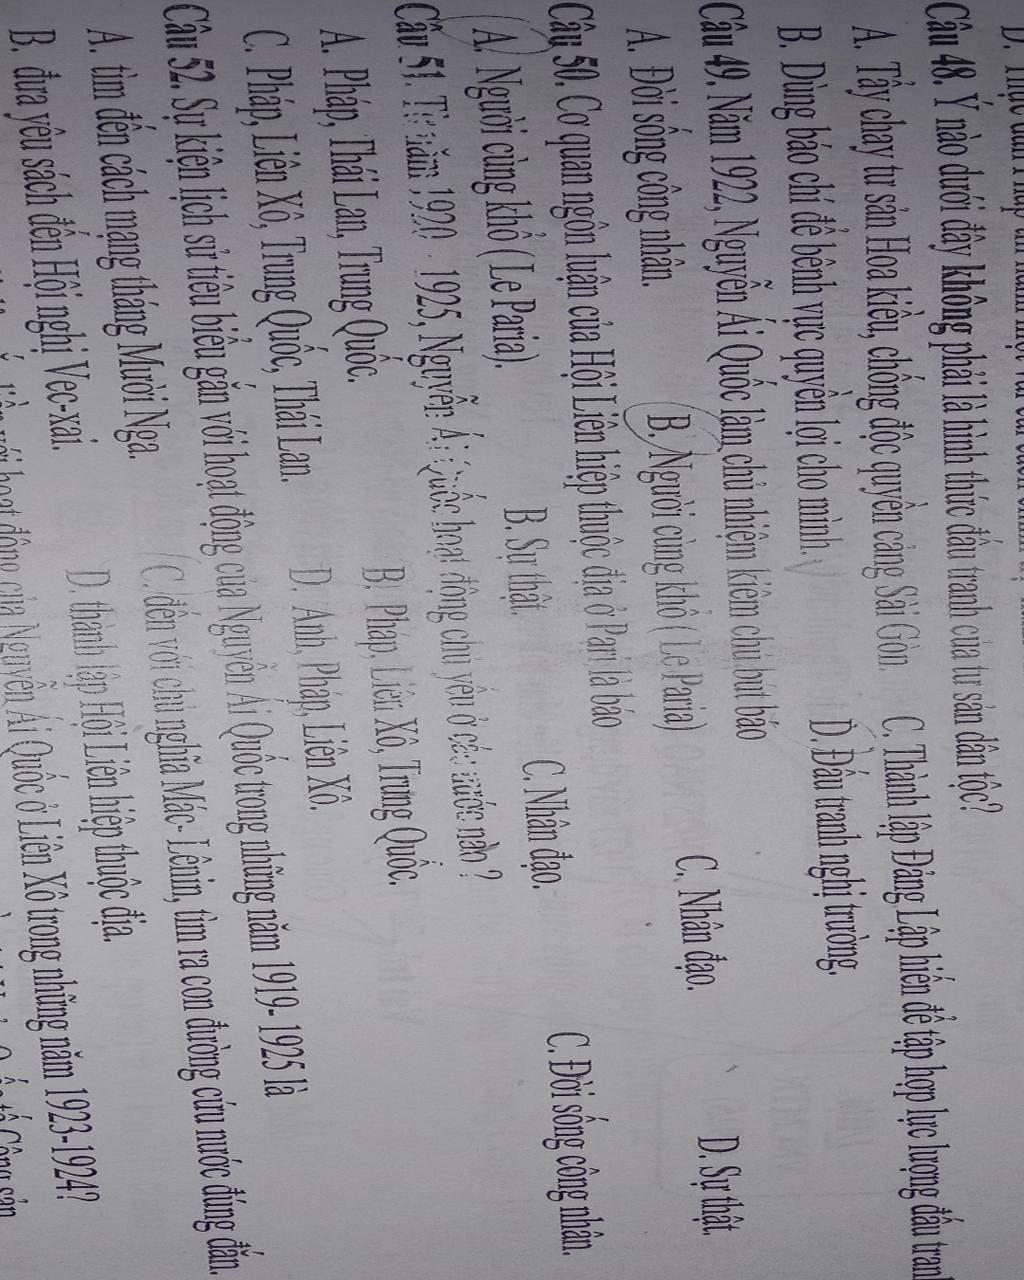 Câu 48. Ý nào dưới đây không phải là hình thức đấu tranh của tư sản dân tộc?
A. Tẩy chay tư sản Hoa kiều, chống độc quyền cảng Sài Gòn. C. Thành lập Đảng Lập hiến để tập hợp lực lượng đấu
B. Dùng báo chí để bênh vực quyền lợi cho mình. D. Đấu tranh nghị trường.
Câu 49. Năm 1922, Nguyễn Ái Quốc làm chủ nhiệm kiêm chủ bút báo
A. Đời sống công nhân. B. Người cùng khổ ( Le Paria) C. Nhân đạo. D. Sự thật.
Câu 50. Cơ quan ngôn luận của Hội Liên hiệp thuộc địa ở Pari là báo
A. Người cùng khổ ( Le Paria). B. Sự thật. C. Nhân đạo. C. Đời sống công nhân.
Câu 51. Từ năm 1920 - 1925, Nguyễn Ái Quốc hoạt động chủ yếu ở các nước nào ?
A. Pháp, Thái Lan, Trung Quốc. B. Pháp, Liên Xô, Trung Quốc.
C. Pháp, Liên Xô, Trung Quốc, Thái Lan. D. Anh, Pháp, Liên Xô.
Câu 52. Sự kiện lịch sử tiêu biểu gắn với hoạt động của Nguyễn Ái Quốc trong những năm 1919- 1925 là
A. tìm đến cách mạng tháng Mười Nga. C. đến với chủ nghĩa Mác- Lênin, tìm ra con đường cứu nước đúng đắn.
B. đưa yêu sách đến Hội nghị Vec-xai. D. thành lập Hội Liên hiệp thuộc địa.
với hoạt động của Nguyễn Ái Quốc ở Liên Xô trong những năm 1923-1924?